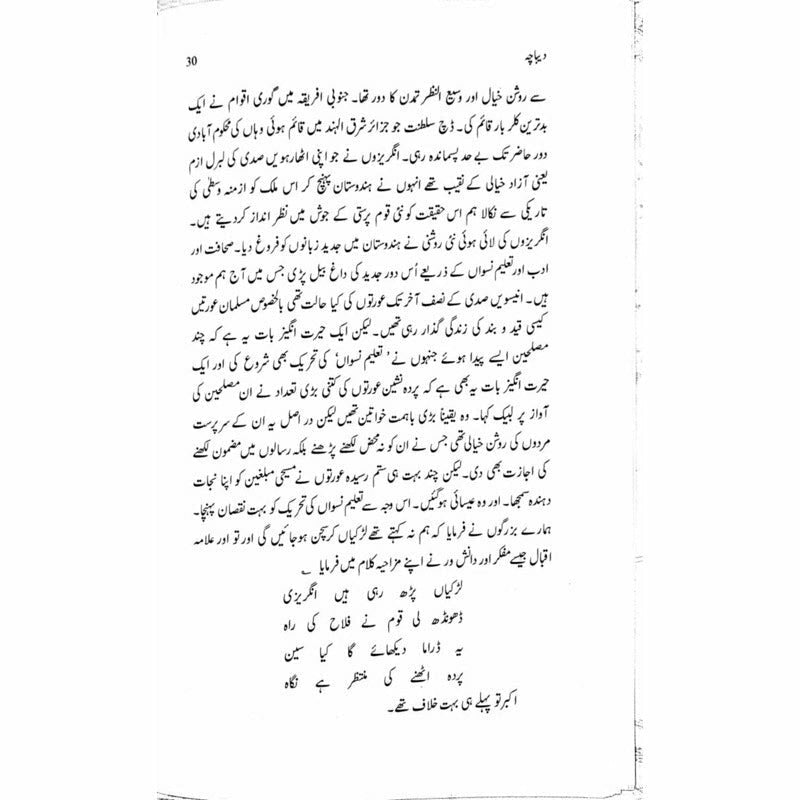 دیباچہ
30
سے روشن خیال اور وسیع النظر تمدن کا دور تھا۔ جنوبی افریقہ میں گوری اقوام نے ایک
بدترین کلر بار قائم کی۔ ڈچ سلطنت جو جزائر شرق الہند میں قائم ہوئی وہاں کی محکوم آبادی
دور حاضر تک بے حد پسماندہ رہی۔ انگریزوں نے جو اپنی اٹھارہویں صدی کی لبرل ازم
یعنی آزاد خیالی کے نقیب تھے انہوں نے ہندوستان پہنچ کر اس ملک کو ازمنہ وسطٰی کی
تاریکی سے نکالا ہم اس حقیقت کو نئی قوم پرستی کے جوش میں نظر انداز کردیتے ہیں۔
انگریزوں کی لائی ہوئی نئی روشنی نے ہندوستان میں جدید زبانوں کو فروغ دیا۔ صحافت اور
ادب اور تعلیم نسواں کے ذریعے اُس دور جدید کی داغ بیل پڑی جس میں آج ہم موجود
ہیں۔ انیسویں صدی کے نصف آخر تک عورتوں کی کیا حالت تھی بالخصوص مسلمان عورتیں
کیسی قید و بند کی زندگی گذار رہی تھیں۔ لیکن ایک حیرت انگیز بات یہ ہے کہ چند
مصلحین ایسے پیدا ہوئے جنہوں نے 'تعلیم نسواں' کی تحریک بھی شروع کی اور ایک
حیرت انگیز بات یہ بھی ہے کہ پردہ نشین عورتوں کی کتنی بڑی تعداد نے ان مصلحین کی
آواز پر لبیک کہا۔ وہ یقیناً بڑی باہمت خواتین تھیں لیکن در اصل یہ ان کے سرپرست
مردوں کی روشن خیالی تھی جس نے ان کو نہ محض لکھنے پڑھنے بلکہ رسالوں میں مضمون لکھنے
کی اجازت بھی دی۔ لیکن چند بہت ہی ستم رسیدہ عورتوں نے مسیحی مبلغین کو اپنا نجات
دہندہ سمجھا۔ اور وہ عیسائی ہوگئیں۔ اس وجہ سے تعلیم نسواں کی تحریک کو بہت نقصان پہنچا۔
ہمارے بزرگوں نے فرمایا کہ ہم نہ کہتے تھے لڑکیاں کرسچن ہوجائیں گی اور تو اور علامہ
اقبال جیسے مفکر اور دانش ور نے اپنے مزاحیہ کلام میں فرمایا ؎
لڑکیاں پڑھ رہی ہیں انگریزی
ڈھونڈھ لی قوم نے فلاح کی راہ
یہ ڈراما دیکھائے گا کیا سین
پردہ اٹھنے کی منتظر ہے نگاہ
اکبر تو پہلے ہی بہت خلاف تھے۔